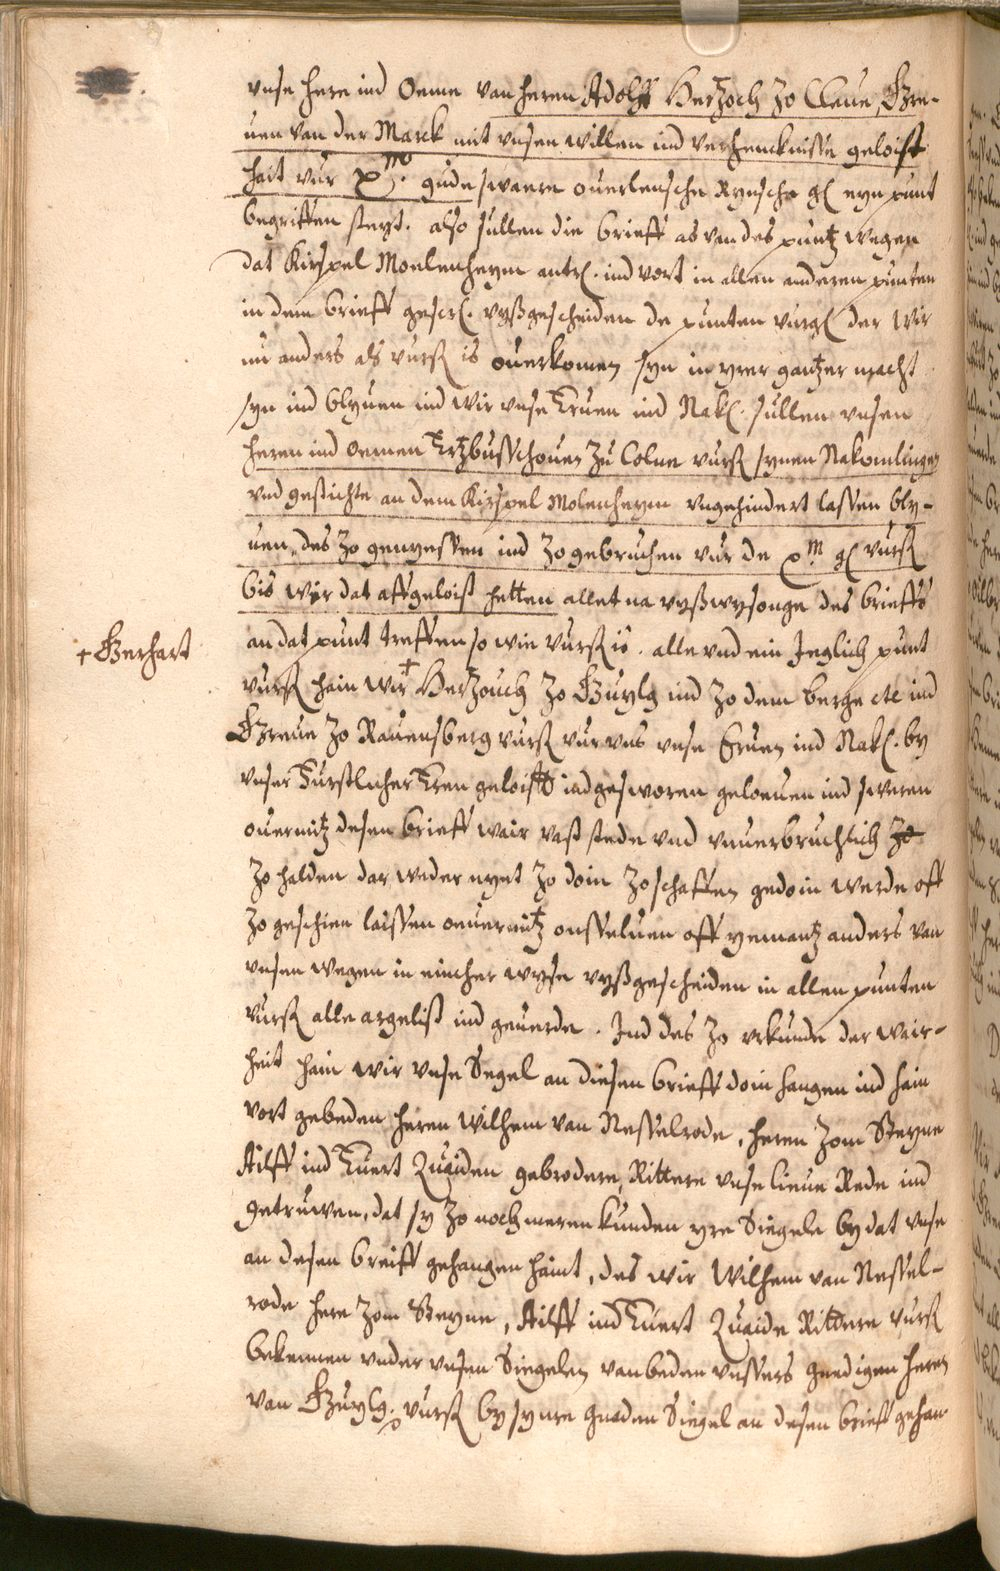 vnse here ind Oeme van heren Adolff Hertzoch zo Cleue, Gre-
uen van der Marck mit vnsen willen ind verhencknisse geloist
hait vur xM. gude swaere ouerlensche Rynsche gl eyn punt
begriffen steyt. also sullen die brieff as van des puntz wegen
dat Kirspel Moelenheym antr. ind vort in allen anderen punten
in dem brieff gescr. vyßgescheiden de punten vurgl der wir
nu anders als vurß is ouerkomen syn in yrer gantzer macht
syn ind blyuen ind wir vnse Eruen ind Nak. sullen vnsen
heren ind oemen Ertzbusschouen zu Colne vurß synen Nakomlingen
vnd gestichte an dem Kirspel Molenheym vngehindert lassen bly-
uen, des zo genyessen ind zo gebruchen vur de xM gl vurß
bis wir dat affgeloist hetten allet na vyßwysonge des brieffs
an dat punt treffen so wie vurß is. alle vnd ein Jeglich punt
+ Gerhart
vurß hain wir + Hertzouch zo Guylg ind zo dem berge etc ind
Greue zo Rauensberg vurß vur vns vnse Eruen ind Nak. by
vnser Furstlicher Eren geloifft ind gesworen gelouen ind sweren
ouermitz desen brieff wair vast stede vnd vnuerbruchlich zo
zo halden dar weder nyet zo doin zo schaffen gedoin werde off
zo geschien laissen ouermitz onsseluen off yemantz anders van
vnsen wegen in eincher wyse vyßgescheiden in allen punten
vurß alle argelist ind geuerde. Ind des zo vrkunde der wair-
heit hain wir vnse Segel an diesen brieff doin hangen ind hain
vort gebeden heren Wilhem van Nesselrode, heren zom Steyne
Ailff ind Euert Quaiden gebrodere, Rittere vnse lieue Rede ind
getruwen, dat sy zo noch meren kunden yre Siegele by dat vnse
an desen breiff gehangen haint, des wir Wilhem van Nessel-
rode here zom Steyne, Ailff ind Euert Quaide Rittere vurß
bekennen vnder vnsen Siegelen van beden vnssers gnedigen heren
van Guylg. vurß by synre gnaden Siegel an desen brieff gehan-